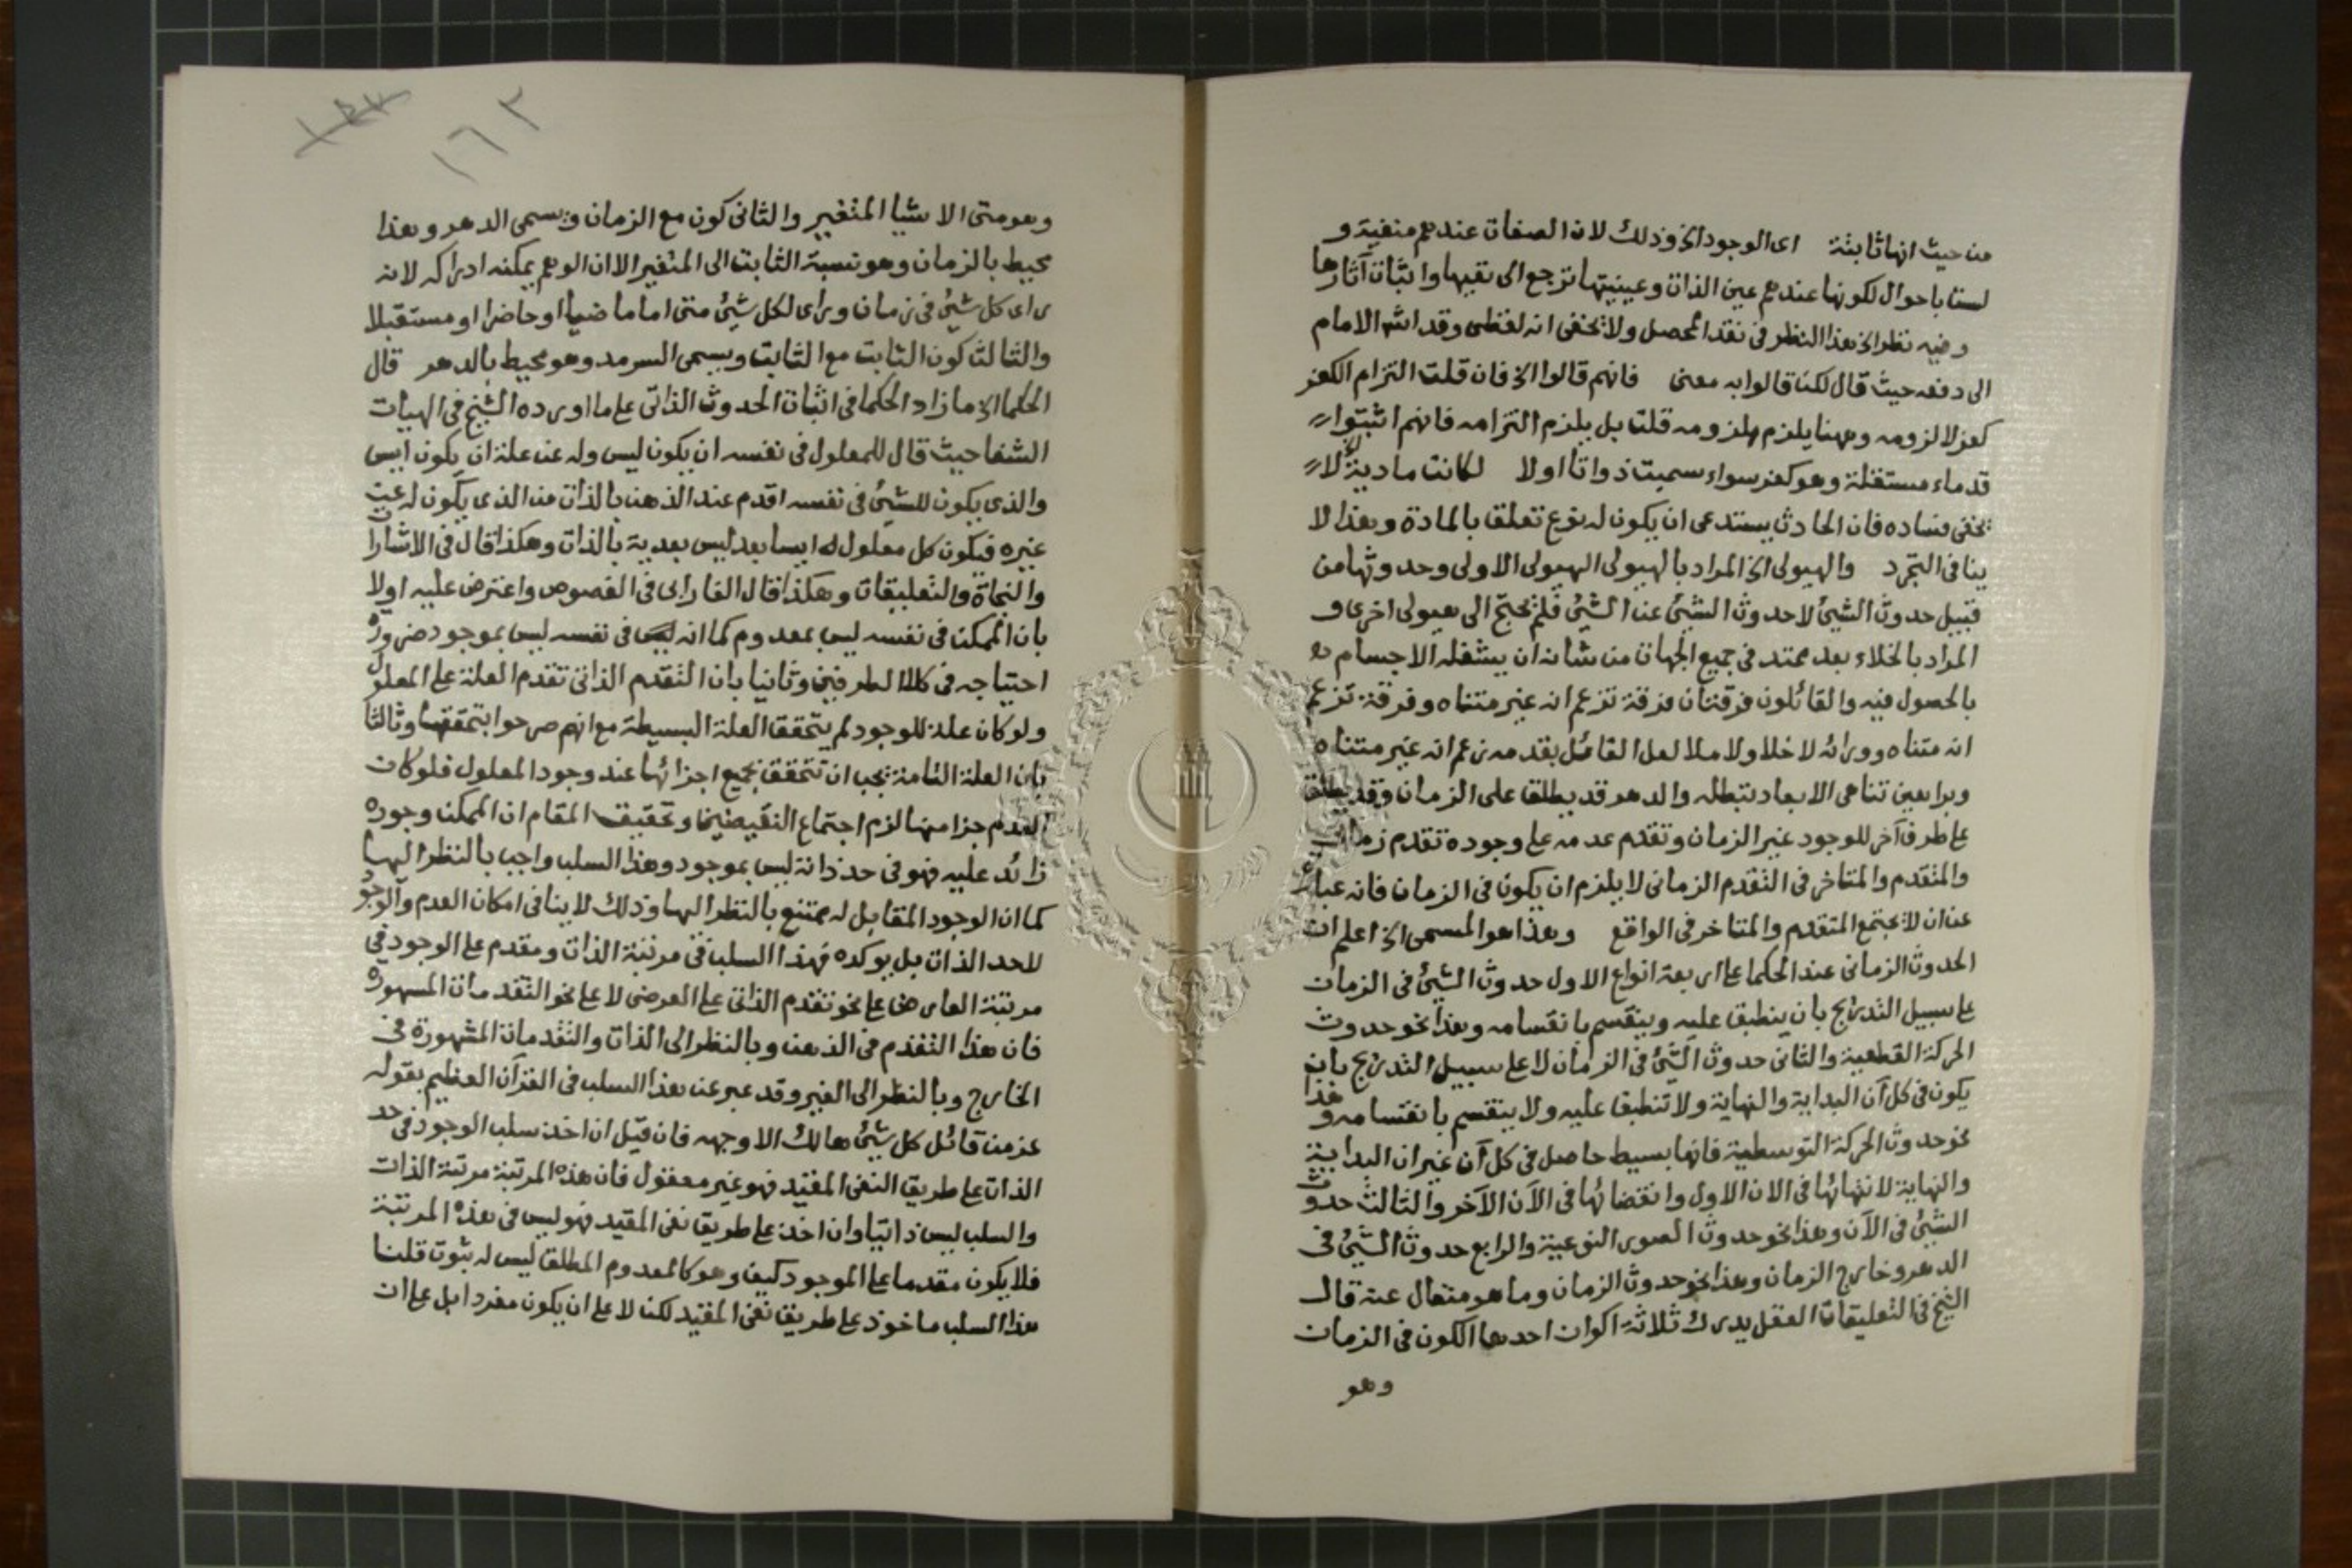 من حيث انها ثابتة اى الوجود الخ وذلك لان الصفات عندهم منفية و
لستا باحوال لكونها عندهم عين الذات وعينيتها ترجع الى نفيها واثبات آثارها
وفيه نظر الخ هذا النظر فى نقد المحصل ولا يخفى انه لفظى وقد اشار الامام
الى دفعه حيث قال لكن قالوا به معنى فانهم قالوا الخ فان قلت التزام الكفر
كفر لا لزومه وههنا يلزم ملزومه قلت بل يلزم التزامه فانهم اثبتوا
قدماء مستقلة وهو كفر سواء سميت ذواتا او لا لكانت مادية الخ لا
يخفى فساده فان الحادث يستدعى ان يكون له نوع تعلق بالمادة وهذا لا
ينافى التجرد والهيولى الخ المراد بالهيولى الهيولى الاولى وحدوثها من
قبيل حدوث الشئ لا حدوث الشئ عن الشئ فلم يحتج الى هيولى اخرى و
المراد بالخلاء بعد ممتد فى جميع الجهات من شانه ان يشغله الاجسام
بالحصول فيه والقائلون فرقتان فرقة تزعم انه غير متناه وفرقة تزعم
انه متناه ووراءه لا خلا ولا ملا لعل القائل بقدمه زعم انه غير متناه
وبراهين تناهى الابعاد تبطله والدهر قد يطلق على الزمان وقد يطلق
على طرف آخر للوجود غير الزمان وتقدم عدمه على وجوده تقدم زمانى
والمتقدم والمتاخر فى التقدم الزمانى لا يلزم ان يكون فى الزمان فانه عبارة
عن ان لا يجتمع المتقدم والمتاخر فى الواقع وهذا هو المسمى الخ اعلم ان
الحدوث الزمانى عند الحكما على اربعة انواع الاول حدوث الشئ فى الزمان
على سبيل التدريج بان ينطبق عليه وينقسم بانقسامه وهذا نحو حدوث
الحركة القطعية والثانى حدوث الشئ فى الزمان لا على سبيل التدريج بان
يكون فى كل آن البداية والنهاية ولا تنطبق عليه ولا ينقسم بانقسامه وهذا
نحو حدوث الحركة التوسطية فانها بسيط حاصل فى كل آن غير ان البداية
والنهاية لانتهائها فى الان الاول وانقضائها فى الآن الآخر والثالث حدوث
الشئ فى الآن وهذا نحو حدوث الصور النوعية والرابع حدوث الشئ فى
الدهر وخارج الزمان وهذا نحو حدوث الزمان وما هو متعال عنه قال
الشيخ فى التعليقات العقل يدرك ثلاثة اكوان احدها الكون فى الزمان
وهو
١٦٣
وهو متى الاشيا المتغير والثانى كون مع الزمان ويسمى الدهر وهذا
محيط بالزمان وهو نسبة الثابت الى المتغير الا ان الوهم يمكنه ادراكه لانه
راى كل شئ فى زمان وراى لكل شئ متى اما ماضيا او حاضرا او مستقبلا
والثالث كون الثابت مع الثابت ويسمى السرمد وهو محيط بالدهر قال
الحكما الخ ما زاد الحكما فى اثبات الحدوث الذاتى على ما اورده الشيخ فى الهيات
الشفا حيث قال للمعلول فى نفسه ان يكون ليس وله عن علة ان يكون ايس
والذى يكون للشئ فى نفسه اقدم عند الذهن بالذات من الذى يكون له عن
غيره فيكون كل معلول له ايسا بعد ليس بعدية بالذات وهكذا قال فى الاشارات
والنجاة والتعليقات وهكذا قال الفارابى فى الفصوص واعترض عليه اولا
بان الممكن فى نفسه ليس بمعدوم كما انه ليس فى نفسه ليس بموجود ضرورة
احتياجه فى كلا الطرفين وثانيا بان التقدم الذاتى تقدم العلة على المعلول
ولو كان علة للوجود لم يتحقق العلة البسيطة مع انهم صرحوا بتحققها وثالثا
بان العلة التامة يجب ان تتحقق بجميع اجزائها عند وجود المعلول فلو كان
العدم جزا منها لزم اجتماع النقيضين وتحقيق المقام ان الممكن وجوده
زائد عليه فهو فى حد ذاته ليس بموجود وهذا السلب واجب بالنظر اليها
كما ان الوجود المقابل له ممتنع بالنظر اليها وذلك لا ينافى امكان العدم والوجود
للحد الذات بل يوكده فهذا السلب فى مرتبة الذات ومقدم على الوجود فى
مرتبة العارض على نحو تقدم الذاتى على العرضى لا على نحو التقدمات المشهورة
فان هذا التقدم فى الذهن وبالنظر الى الذات والتقدمات المشهورة فى
الخارج وبالنظر الى الغير وقد عبر عن هذا السلب فى القرآن العظيم بقوله
عز من قائل كل شئ هالك الا وجهه فان قيل ان اخذ سلب الوجود فى حد
الذات على طريق النفى المقيد فهو غير معقول فان هذه المرتبة مرتبة الذات
والسلب ليس ذاتيا وان اخذ على طريق نفى المقيد فهو ليس فى هذه المرتبة
فلا يكون مقدما على الموجود كيف وهو كالمعدوم المطلق ليس له ثبوت قلنا
هذا السلب ماخوذ على طريق نفى المقيد لكن لا على ان يكون مفردا بل على ان